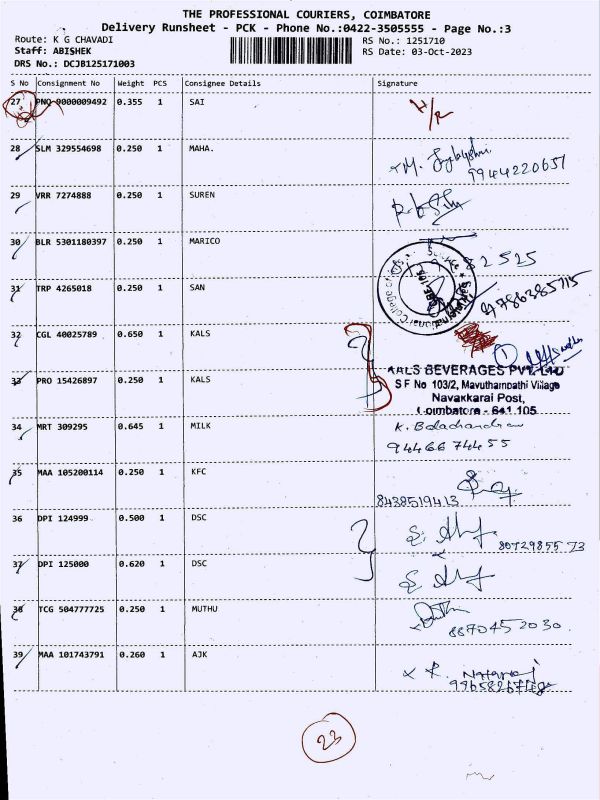 THE PROFESSIONAL COURIERS, COIMBATORE
Delivery Runsheet - PCK - Phone No.:0422-3505555 - Page No.:3
Route: K G CHAVADI
RS No.: 1251710
Staff: ABISHEK
RS Date: 03-Oct-2023
DRS No.: DCJB125171003
S No Consignment No Weight PCS Consignee Details Signature
27 PNQ 0000009492 0.355 1 SAI
28 SLM 329554698 0.250 1 MAHA.
29 VRR 7274888 0.250 1 SUREN
30 BLR 5301180397 0.250 1 MARICO
31 TRP 4265018 0.250 1 SAN
32 CGL 40025789 0.650 1 KALS
KALS BEVERAGES PVT. LTD
33 PRO 15426897 0.250 1 KALS
S F No 103/2, Mavuthampathi Village
Navakkarai Post,
Coimbatore - 641 105
34 MRT 309295 0.645 1 MILK K. Balachandran
94466 74455
35 MAA 105200114 0.250 1 KFC
8438519413
36 DPI 124999 0.500 1 DSC
8072985573
37 DPI 125000 0.620 1 DSC
38 TCG 504777725 0.250 1 MUTHU
8870452030
39 MAA 101743791 0.260 1 AJK
23